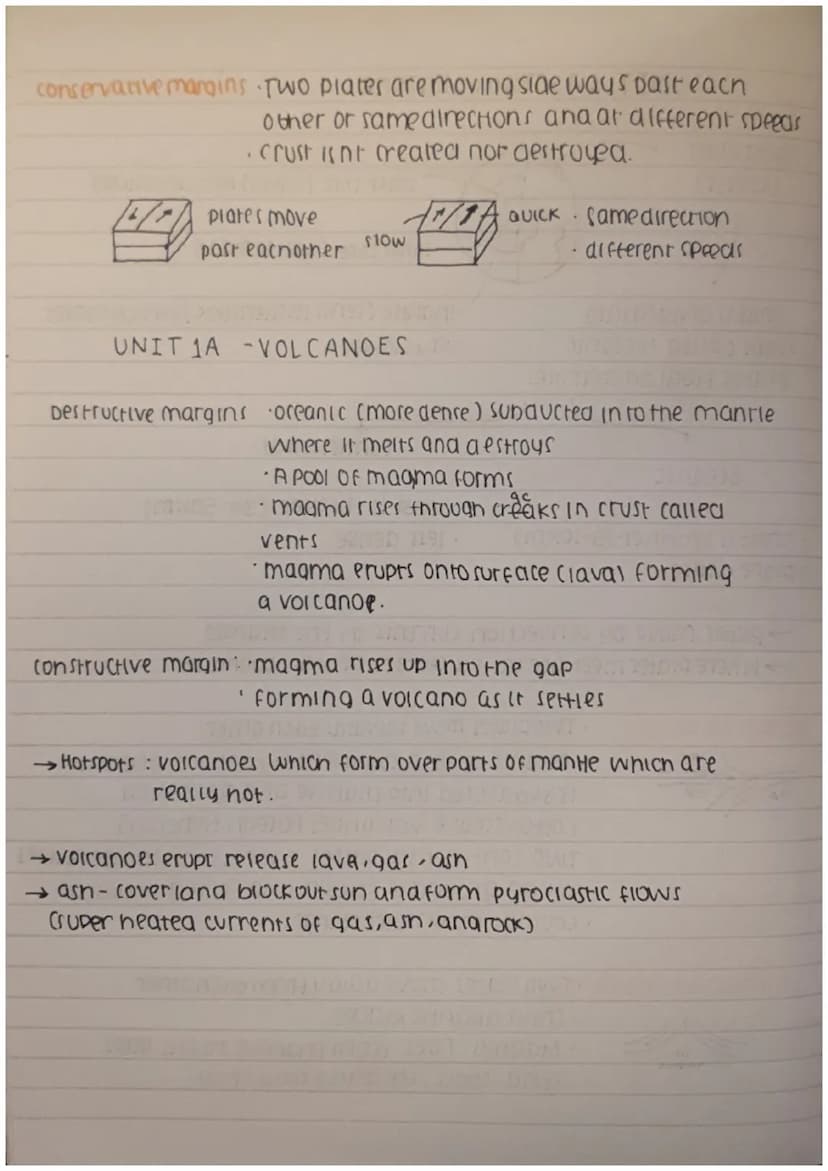 conservative margins · Two plates are moving sideways past each
other or same directions and at different speeds
· crust isnt created nor destroyed.
plates move
past eachother
slow
QUICK
· same direction
· different speeds
UNIT 1A - VOLCANOES
Destructive margins · oceanic (more dense) subducted into the mantle
where it melts and destroys
· A pool of magma forms
· magma rises through cracks in crust called
vents
· magma erupts onto surface (lava) forming
a volcanoe.
constructive margin: · magma rises up into the gap
· forming a volcano as it settles
→ Hotspots : volcanoes which form over parts of mantle which are
really hot.
→ volcanoes erupt release lava, gas, ash
→ ash - cover land block out sun and form pyroclastic flows
(super heated currents of gas, ash, and rock)